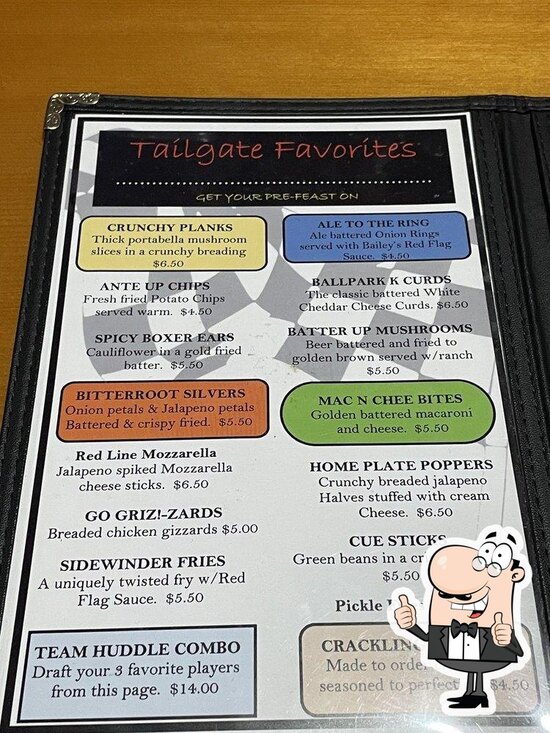 Tailgate Favorites
GET YOUR PRE-FEAST ON
CRUNCHY PLANKS
Thick portabella mushroom
slices in a crunchy breading
$6.50
ANTE UP CHIPS
Fresh fried Potato Chips
served warm. $4.50
SPICY BOXER EARS
Cauliflower in a gold fried
batter. $5.50
BITTERROOT SILVERS
Onion petals & Jalapeno petals
Battered & crispy fried. $5.50
Red Line Mozzarella
Jalapeno spiked Mozzarella
cheese sticks. $6.50
GO GRIZ!-ZARDS
Breaded chicken gizzards $5.00
SIDEWINDER FRIES
A uniquely twisted fry w/Red
Flag Sauce. $5.50
TEAM HUDDLE COMBO
Draft your 3 favorite players
from this page. $14.00
ALE TO THE RING
Ale battered Onion Rings
served with Bailey's Red Flag
Sauce. $4.50
BALLPARK K CURDS
The classic battered White
Cheddar Cheese Curds. $6.50
BATTER UP MUSHROOMS
Beer battered and fried to
golden brown served w/ranch
$5.50
MAC N CHEE BITES
Golden battered macaroni
and cheese. $5.50
HOME PLATE POPPERS
Crunchy breaded jalapeno
Halves stuffed with cream
Cheese. $6.50
CUE STICKS
Green beans in a
$5.50
Pickle
Made to
seasoned to perfect $4.50